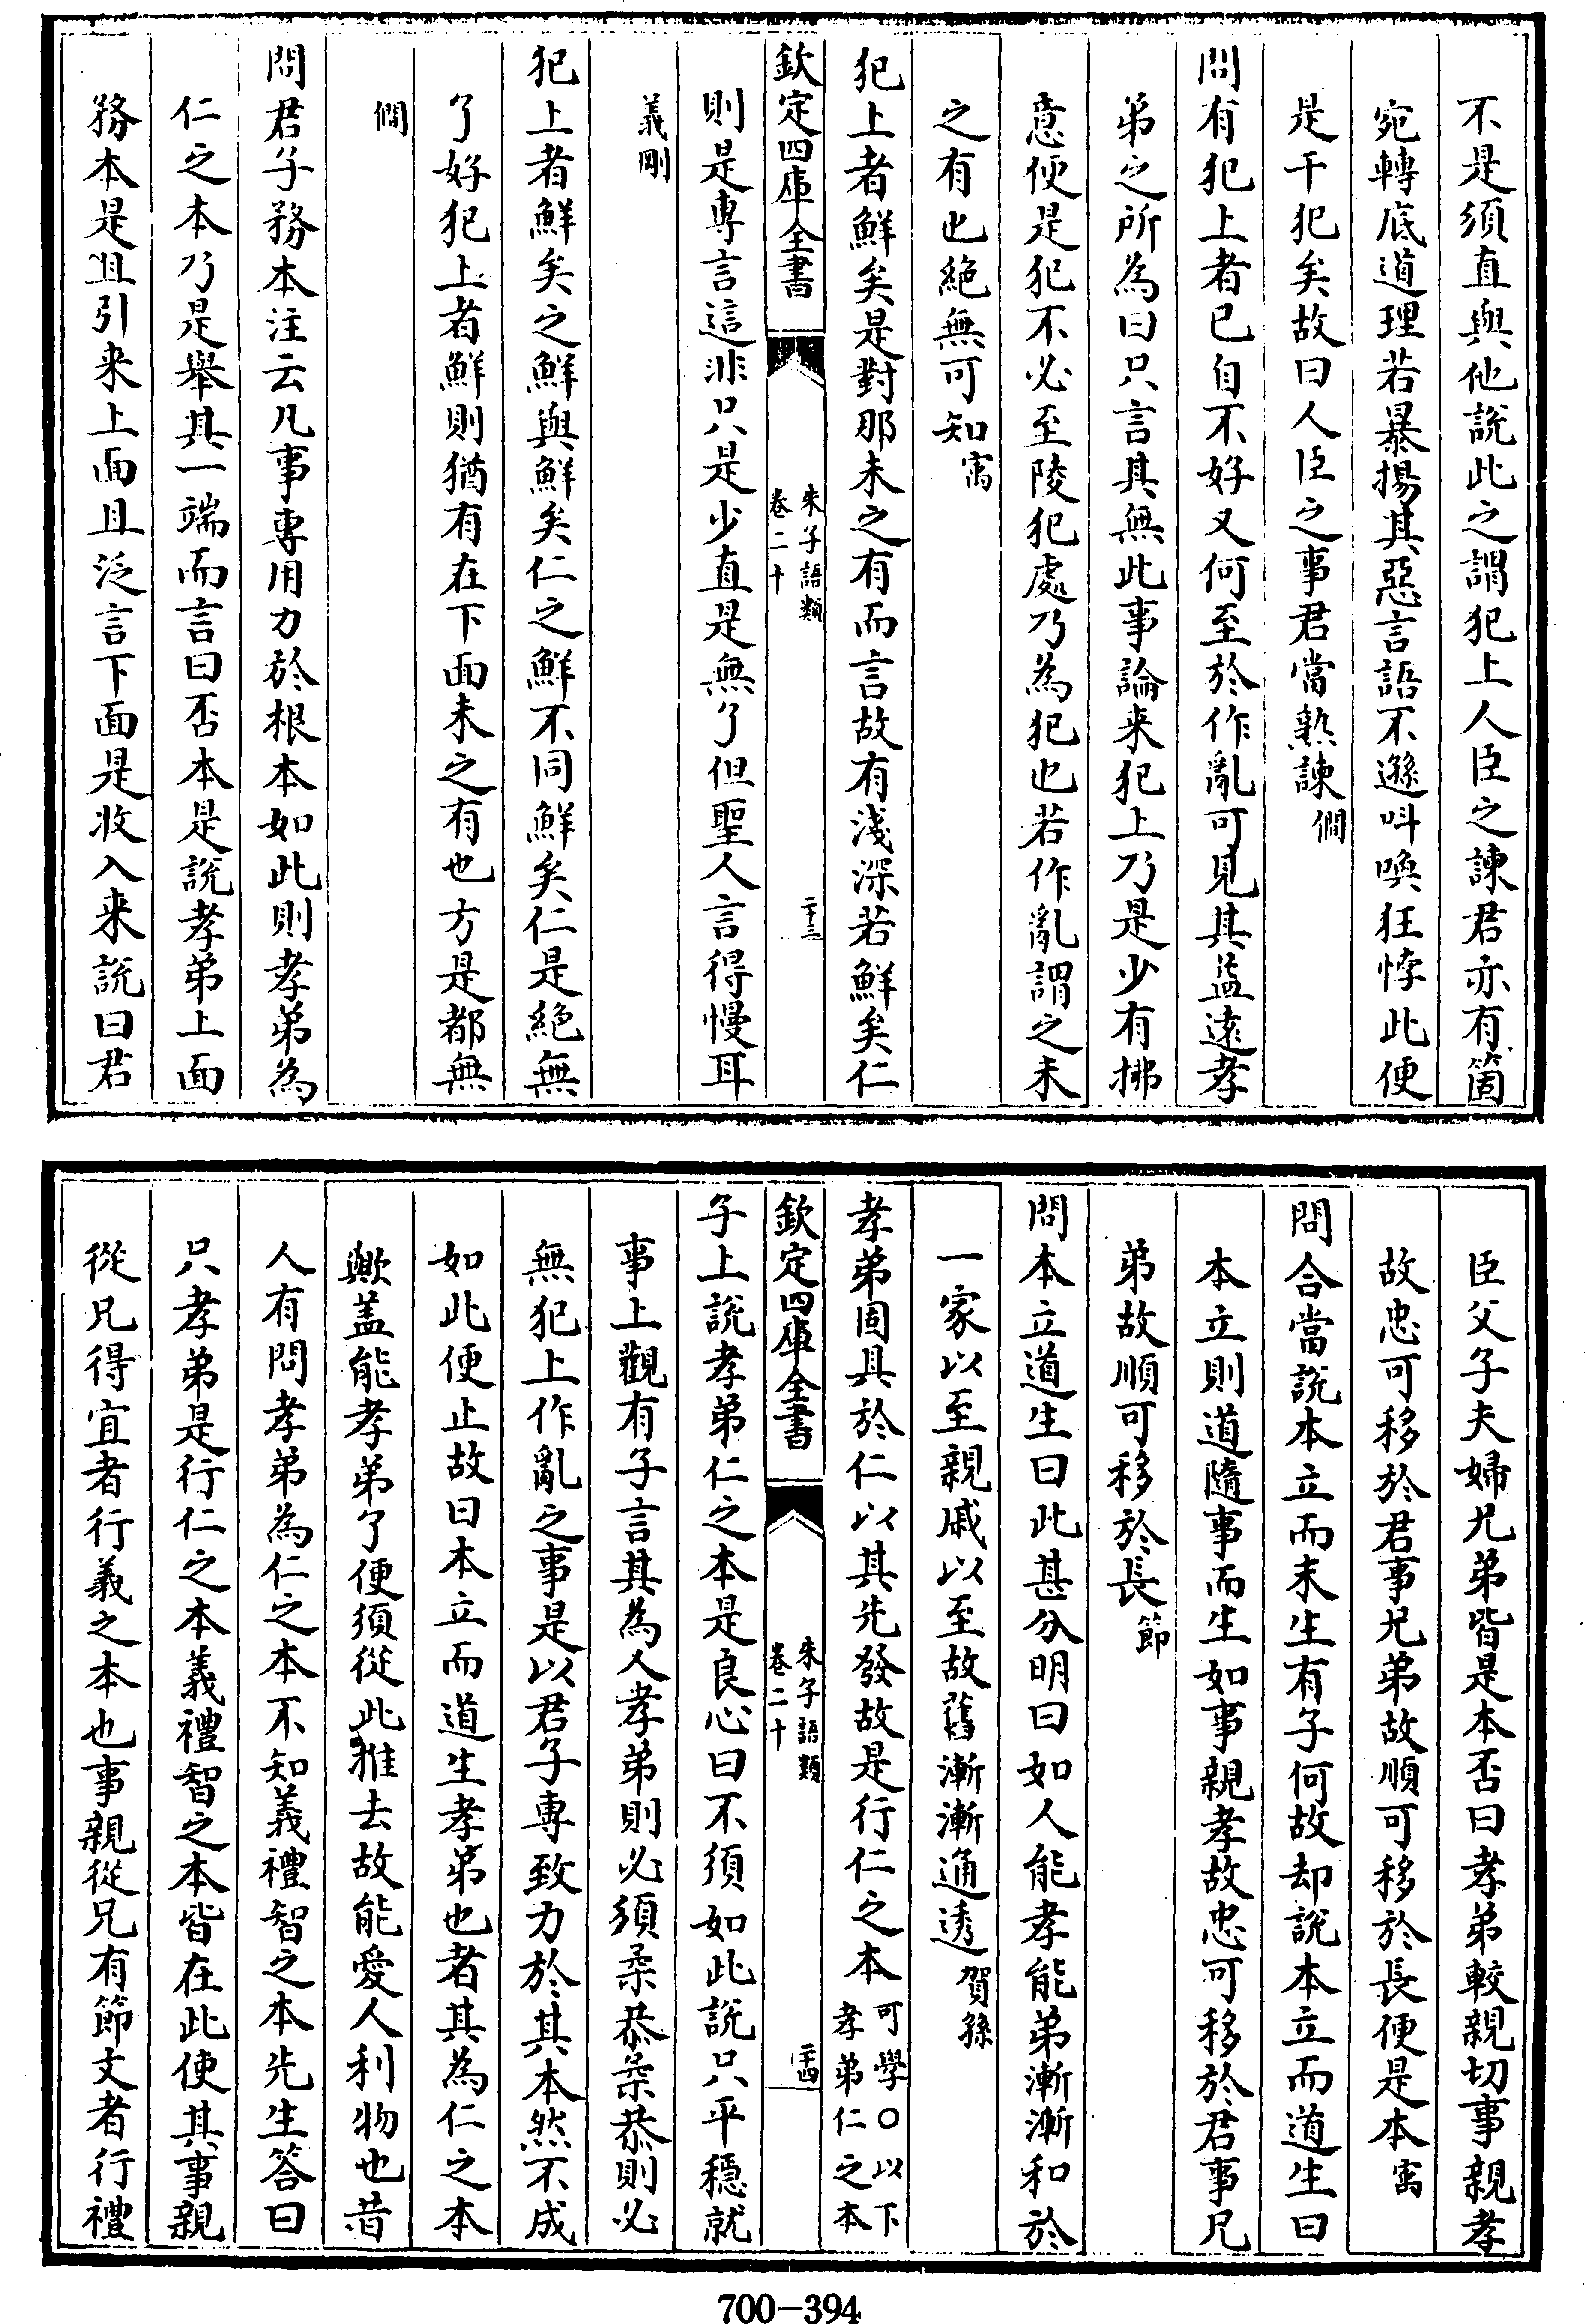 不是須直與他說此之謂犯上人臣之諫君亦有箇
宛轉底道理若暴揚其惡言語不遜呌喚狂悖此便
是干犯矣故曰人臣之事君當熟諫僩
問有犯上者已自不好又何至於作亂可見其益遠孝
弟之所為曰只言其無此事論来犯上乃是少有拂
意便是犯不必至陵犯處乃為犯也若作亂謂之未
之有也絕無可知㝢
犯上者鮮矣是對那未之有而言故有淺深若鮮矣仁
欽定四庫全書
朱子語類
卷二十
二十三
則是專言這非只是少直是無了但聖人言得慢耳
義剛
犯上者鮮矣之鮮與鮮矣仁之鮮不同鮮矣仁是絕無
了好犯上者鮮則猶有在下面未之有也方是都無
僩
問君子務本注云凡事專用力於根本如此則孝弟為
仁之本乃是舉其一端而言曰否本是說孝弟上面
務本是且引来上面且泛言下面是收入来說曰君
臣父子夫婦兄弟皆是本否曰孝弟較親切事親孝
故忠可移於君事兄弟故順可移於長便是本㝢
問合當說本立而末生有子何故却說本立而道生曰
本立則道隨事而生如事親孝故忠可移於君事兄
弟故順可移於長節
問本立道生曰此甚分明曰如人能孝能弟漸漸和於
一家以至親戚以至故舊漸漸通透賀孫
孝弟固具於仁以其先發故是行仁之本可學○以下
孝弟仁之本
欽定四庫全書
朱子語類
卷二十
二十四
子上說孝弟仁之本是良心曰不須如此說只平穩就
事上觀有子言其為人孝弟則必須柔恭柔恭則必
無犯上作亂之事是以君子專致力於其本然不成
如此便止故曰本立而道生孝弟也者其為仁之本
歟盖能孝弟了便須從此推去故能愛人利物也昔
人有問孝弟為仁之本不知義禮智之本先生答曰
只孝弟是行仁之本義禮智之本皆在此使其事親
從兄得宜者行義之本也事親從兄有節文者行禮
700-394